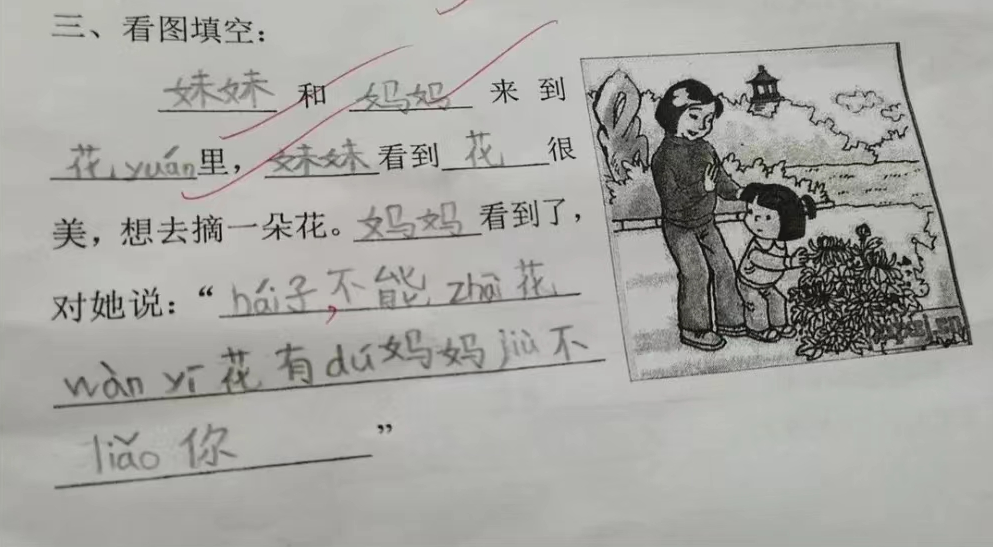 三、看图填空：
妹妹 和 妈妈 来 到
花yuán里，妹妹看到 花 很
美，想去摘一朵花。妈妈看到了，
对她说：“hái子，不能zhāi花
wàn yī花有dú妈妈jiù不
liǎo你”